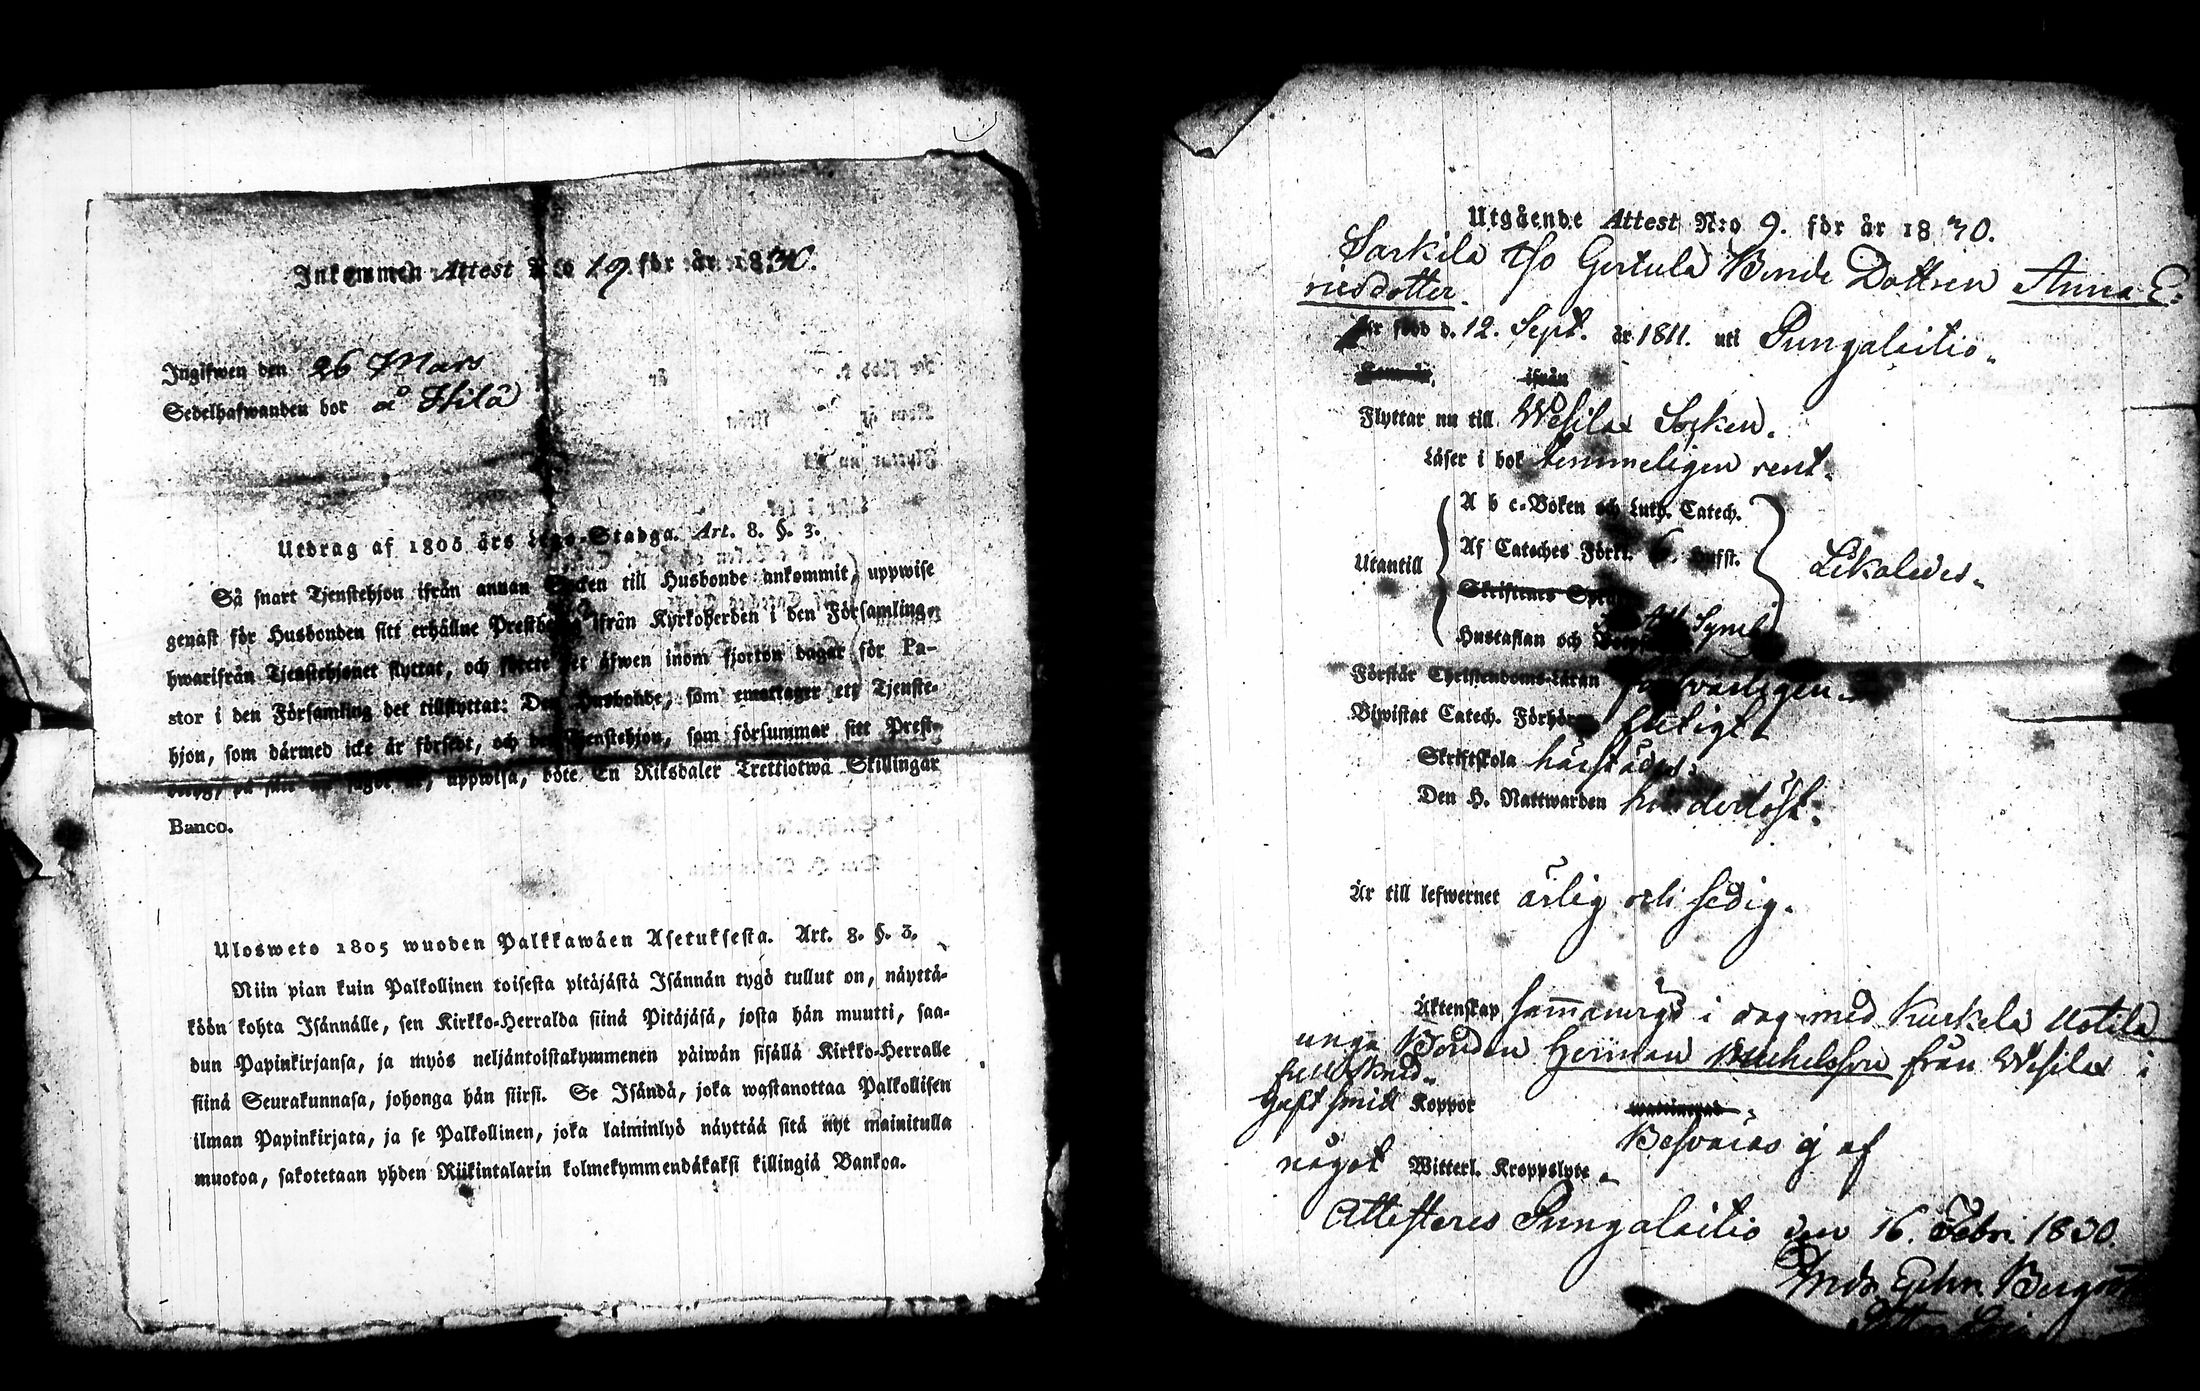 Inkommen Attest N:o 19 för år 1830.
Ingifwen den 26 Mars
Sedelhafwanden bor å Hilä
Utdrag af 1805 års Lego-Stadga. Art. 8. §. 3.
Så snart Tjenstehjon ifrån annan Socken till Husbonde ankommit, uppwise
genast för Husbonden sitt erhållne Prestbetyg ifrån Kyrkoherden i den Församling,
hwarifrån Tjenstehjonet flyttat, och förete det äfwen inom fjorton dagar för Pa-
stor i den Församling det tillflyttat: Den Husbonde, som emottager ett Tjenste-
hjon, som därmed icke är försedt, och det Tjenstehjon, som försummar sitt Prest-
betyg, på sätt uppwisa, böte En Riksdaler Trettiotwå Skillingar
Banco.
Ulosweto 1805 wuoden Palkkawäen Asetuksesta. Art. 8. §. 3.
Niin pian kuin Palkollinen toisesta pitäjästä Isännän tygö tullut on, näyttä-
köön kohta Isännälle, sen Kirkko-Herralda siinä Pitäjäsä, josta hän muutti, saa-
dun Papinkirjansa, ja myös neljäntoistakymmenen päiwän sisällä Kirkko-Herralle
siinä Seurakunnasa, johonga hän siirsi. Se Isändä, joka wastanottaa Palkollisen
ilman Papinkirjata, ja se Palkollinen, joka laiminlyö näyttää sitä nyt mainitulla
muotoa, sakotetaan yhden Riikintalarin kolmekymmendäkaksi killingiä Bankoa.
Utgående Attest N:o 9. för år 1830.
Sarkila Gertula Bonde Dottren Anna E:
ricsdotter.
är född d. 12. Sept. år 1811. uti Pungalaitio.
ifrån
Flyttar nu till Wesilax Socken.
Läser i bok temmeligen rent.
A b c-Boken och Luth. Catech.
Utantill Af Cateches Förkl. 6. Hufst. Likaledes.
Skriftenes
Hustaflan och Symb.
Förstår Christendoms-Läran försvarligen.
Biwistat Catech. Förhör flitigt
Skriftskola härstädes.
Den H. Nattwarden hinderlöst.
Är till lefwernet ärlig och sedig.
Äktenskap sammanvigd i dag med Kurkela Uotila
unga Bonden Herman Michelsson från Wesilax i
Haft smitt Koppor
Besväras ej af
något Witterl. Kroppslyte.
Attesteras Pungalaitio den 16. Febr. 1830.